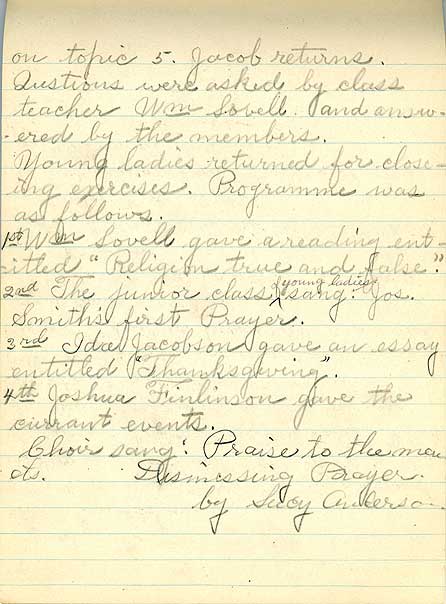 on topic 5. Jacob returns.
Qustions were asked by class
teacher Wm Lovell. and answ-
ered by the members.
Young ladies returned for clos-
ing exercises. Programme was
as follows.
1st Wm Lovell gave a reading ent-
itled "Religion true and false".
2nd The junior class young ladies sang: Jos.
Smith's first Prayer.
3rd Ida Jacobson gave an essay
entitled "Thanksgiving".
4th Joshua Finlinson gave the
currant events.
Choir sang: Praise to the man
etc. Dismissing Prayer.
by Lucy Anderson.